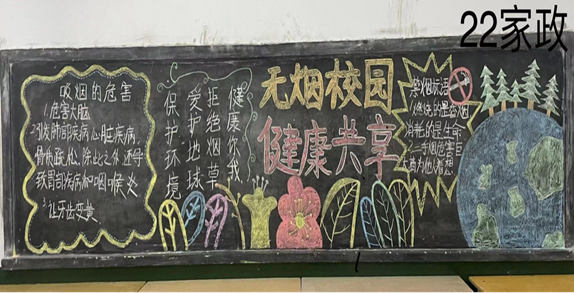 22家政
吸烟的危害
1.危害大脑
2.引发肺部疾病,心脏疾病,
骨质疏松,除此之外还导
致胃部疾病和咽喉炎
3.让牙齿变黄
健康你我
拒绝烟草
爱护地球
保护环境
无烟校园
健康共享
禁烟标语
燃烧的是香烟
消耗的是生命
二手烟危害巨
大